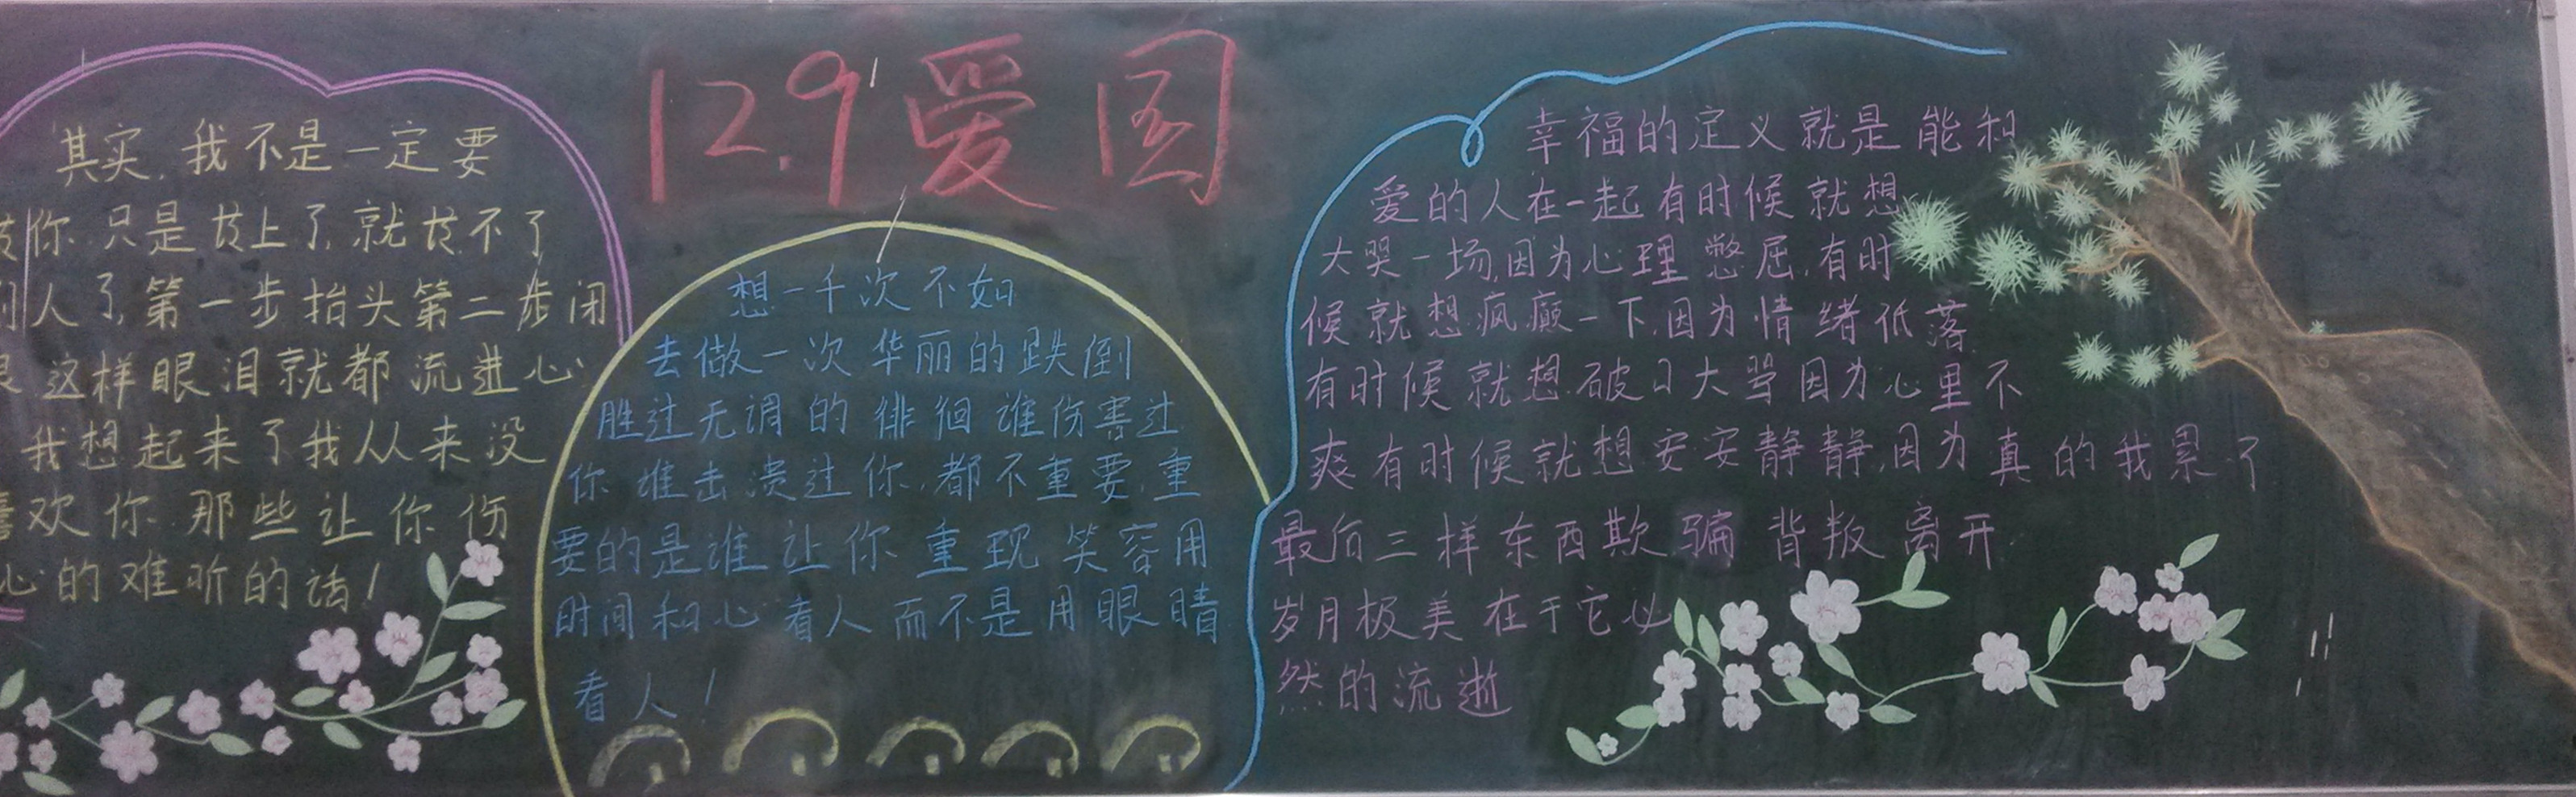 12.9爱国
其实,我不是一定要
你 只是 上了,就 不了
别人了,第一步抬头第二步闭
眼 这样眼泪就都流进心
我想起来了我从来没
喜欢你 那些让你伤
心的难听的话!
想一千次不如
去做一次华丽的跌倒
胜过无谓的徘徊 谁伤害过
你 谁击溃过你,都不重要,重
要的是谁让你重现笑容用
时间和心看人而不是用眼睛
看人!
幸福的定义就是能和
爱的人在一起有时候就想
大哭一场,因为心理憋屈,有时
候就想疯癫一下,因为情绪低落
有时候就想破口大骂因为心里不
爽有时候就想安安静静,因为真的我累了
最后三样东西欺骗背叛离开
岁月极美在于它必
然的流逝